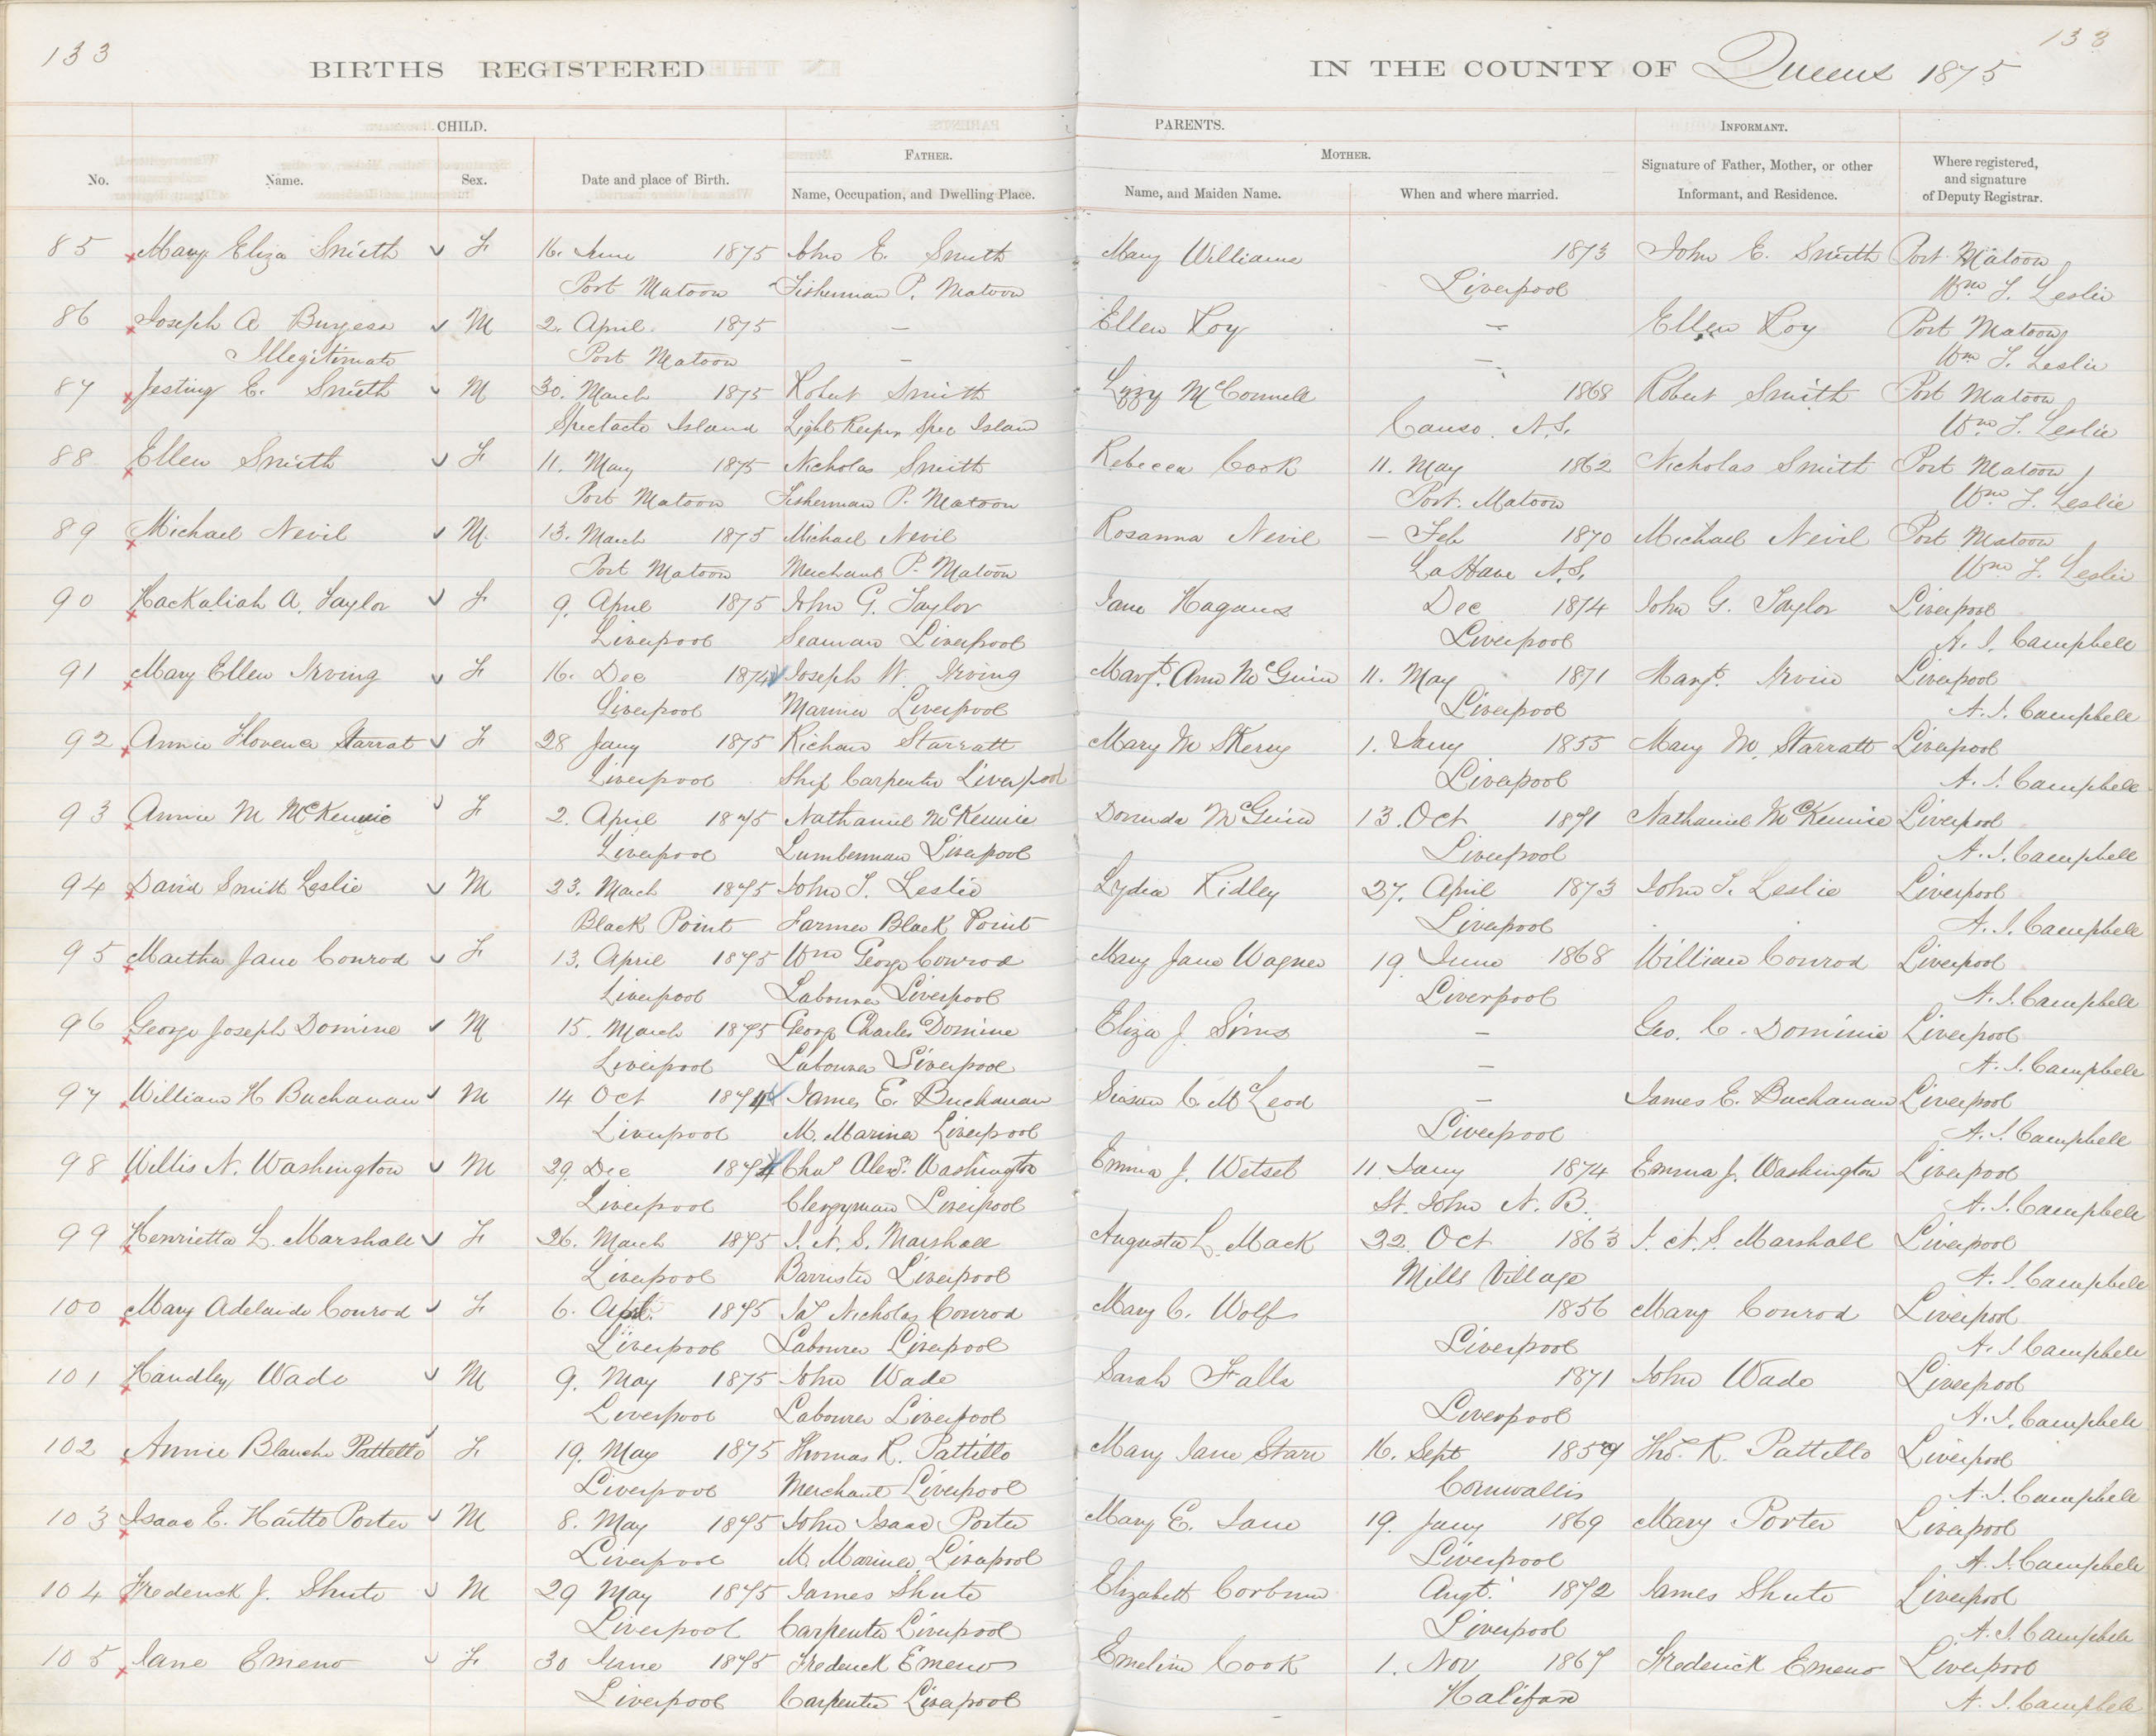 133
133
BIRTHS REGISTERED IN THE COUNTY OF Queens 1875
CHILD. PARENTS. INFORMANT.
FATHER. MOTHER.
No. Name. Sex. Date and place of Birth. Name, Occupation, and Dwelling Place. Name, and Maiden Name. When and where married. Signature of Father, Mother, or other Informant, and Residence. Where registered, and signature of Deputy Registrar.
85 Mary Eliza Smith F 16. June 1875 John E. Smith Mary Williams 1873 John E. Smith Port Matoon
Port Matoon Fisherman P. Matoon Liverpool Wm T. Leslie
86 Joseph A Burgess M 2. April 1875 — Ellen Roy — Ellen Roy Port Matoon
Illegitimate Port Matoon — — Wm T. Leslie
87 Jesting E. Smith M 30. March 1875 Robert Smith Lizzy McConnell 1868 Robert Smith Port Matoon
Spectacle Island Light Keeper Spec Island Canso N.S. Wm T. Leslie
88 Ellen Smith F 11. May 1875 Nicholas Smith Rebecca Cook 11. May 1862 Nicholas Smith Port Matoon
Port Matoon Fisherman P. Matoon Port. Matoon Wm T. Leslie
89 Michael Nevil M. 13. March 1875 Michael Nevil Rosanna Nevil — Feb 1870 Michael Nevil Port Matoon
Port Matoon Merchant P. Matoon LaHave N.S. Wm T. Leslie
90 Hackaliah A. Taylor F 9. April 1875 John G. Taylor Jane Hagans Dec 1874 John G. Taylor Liverpool
Liverpool Seaman Liverpool Liverpool A. J. Campbell
91 Mary Ellen Irving F 16. Dec 1874 Joseph W. Irving Margt. Ann McGuin 11. May 1871 Margt. Irvin Liverpool
Liverpool Mariner Liverpool Liverpool A. J. Campbell
92 Annie Florence Starrat F 28 Jany 1875 Richard Starratt Mary M 1. Jany 1855 Mary M. Starratt Liverpool
Liverpool Ship Carpenter Liverpool Liverpool A. J. Campbell
93 Annie M McKennie F 2. April 1875 Nathaniel McKennie Dorinda McGuin 13. Oct 1871 Nathaniel McKennise Liverpool
Liverpool Lumberman Liverpool Liverpool A. J. Campbell
94 David Smith Leslie M 23. March 1875 John T. Leslie Lydia Ridley 27. April 1873 John T. Leslie Liverpool
Black Point Farmer Black Point Liverpool A. J. Campbell
95 Martha Jane Conrod F 13. April 1875 Wm George Conrod Mary Jane Wagner 19. June 1868 William Conrod Liverpool
Liverpool Labourer Liverpool Liverpool A. J. Campbell
96 George Joseph Domine M 15. March 1875 George Charles Domine Eliza J. Sims — Geo. C. Dominie Liverpool
Liverpool Labourer Liverpool — A. J. Campbell
97 William H Buchanan M 14 Oct 1874 James E. Buchanan Susan C. McLeod — James E. Buchanan Liverpool
Liverpool M. Mariner Liverpool Liverpool A. J. Campbell
98 Willis N. Washington M 29. Dec 1874 Chas Alexr. Washington Emma J. Wetsel 11 Jany 1874 Emma J. Washington Liverpool
Liverpool Clergyman Liverpool St. John N. B. A. J. Campbell
99 Henrietta L. Marshall F 26. March 1875 J. N. S. Marshall Augusta L. Mack 22. Oct 1863 J. N. S. Marshall Liverpool
Liverpool Barrister Liverpool Mills Village A. J. Campbell
100 Mary Adelaide Conrod F 6. Apl. 1875 Jas Nicholas Conrod Mary C. Wolf 1856 Mary Conrod Liverpool
Liverpool Labourer Liverpool Liverpool A. J. Campbell
101 Handley Wade M 9. May 1875 John Wade Sarah Falls 1871 John Wade Liverpool
Liverpool Labourer Liverpool Liverpool A. J. Campbell
102 Annie Blanche Pattello F 19. May 1875 Thomas R. Pattillo Mary Jane Starr 16. Sept 1859 Thos. R. Pattillo Liverpool
Liverpool Merchant Liverpool Cornwallis A. J. Campbell
103 Isaac E. Haitto Porter M 8. May 1875 John Isaac Porter Mary E. Jane 19. Jany 1869 Mary Porter Liverpool
Liverpool M. Mariner Liverpool Liverpool A. J. Campbell
104 Frederick J. Shute M 29 May 1875 James Shute Elizabeth Corbun Augt. 1872 James Shute Liverpool
Liverpool Carpenter Liverpool Liverpool A. J. Campbell
105 Jane Emeno F 30 June 1875 Frederick Emeno Emeline Cook 1. Nov 1867 Frederick Emeno Liverpool
Liverpool Carpenter Liverpool Halifax A. J. Campbell